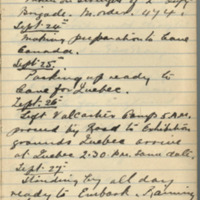 Brigade. M. order. 474.
Sept 24th
Making preparation to leave
Canada.
Sept 25th
Packing up ready to
leave for Quebec.
Sept. 26th
Left Valcartier Camp 5 A.M.
proced by Road to Exhibition
grounds Quebec arrive
at Quebec 2.30 P.M. same date.
Sept. 27th
Standing by all day
ready to Embark. Raining